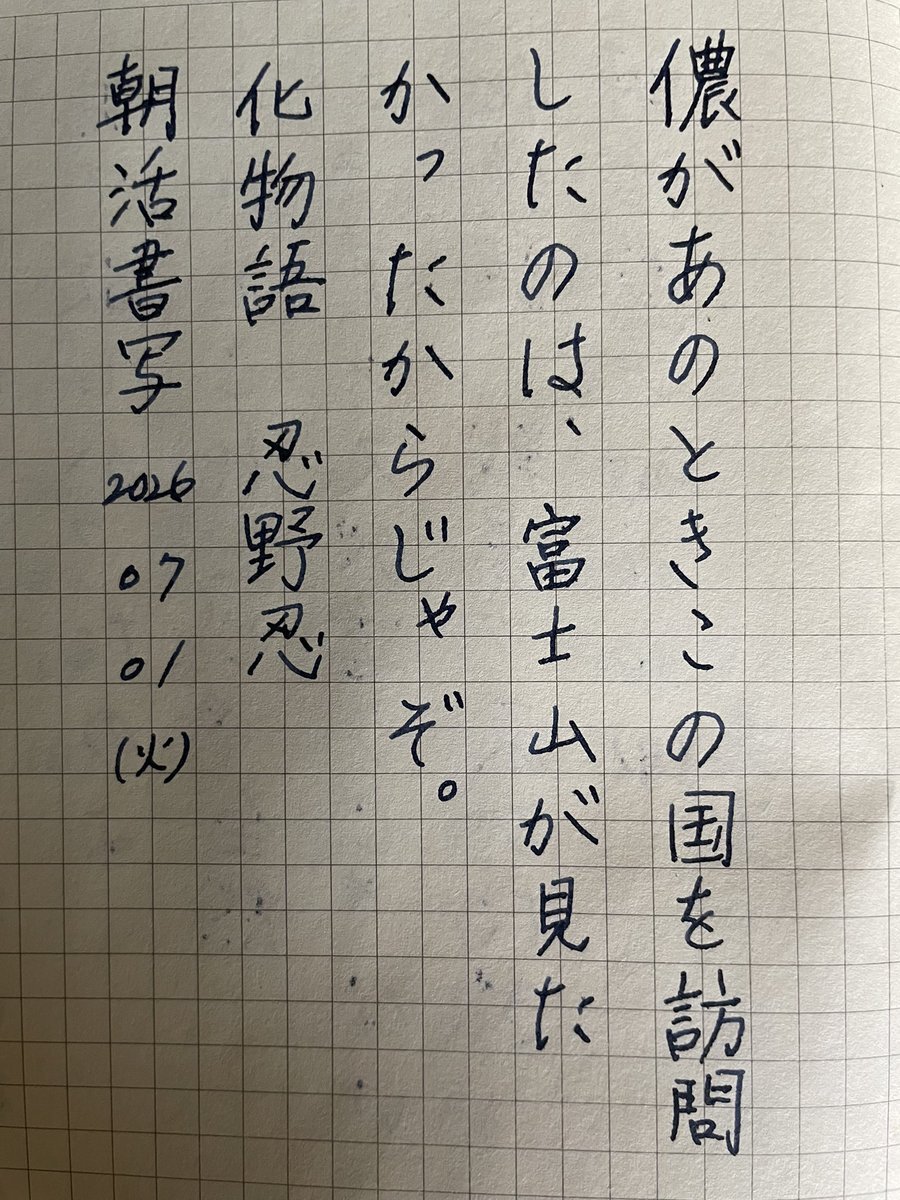 儂があのときこの国を訪問
したのは、富士山が見た
かったからじゃぞ。
化物語 忍野忍
朝活書写 2026 07 01 (火)